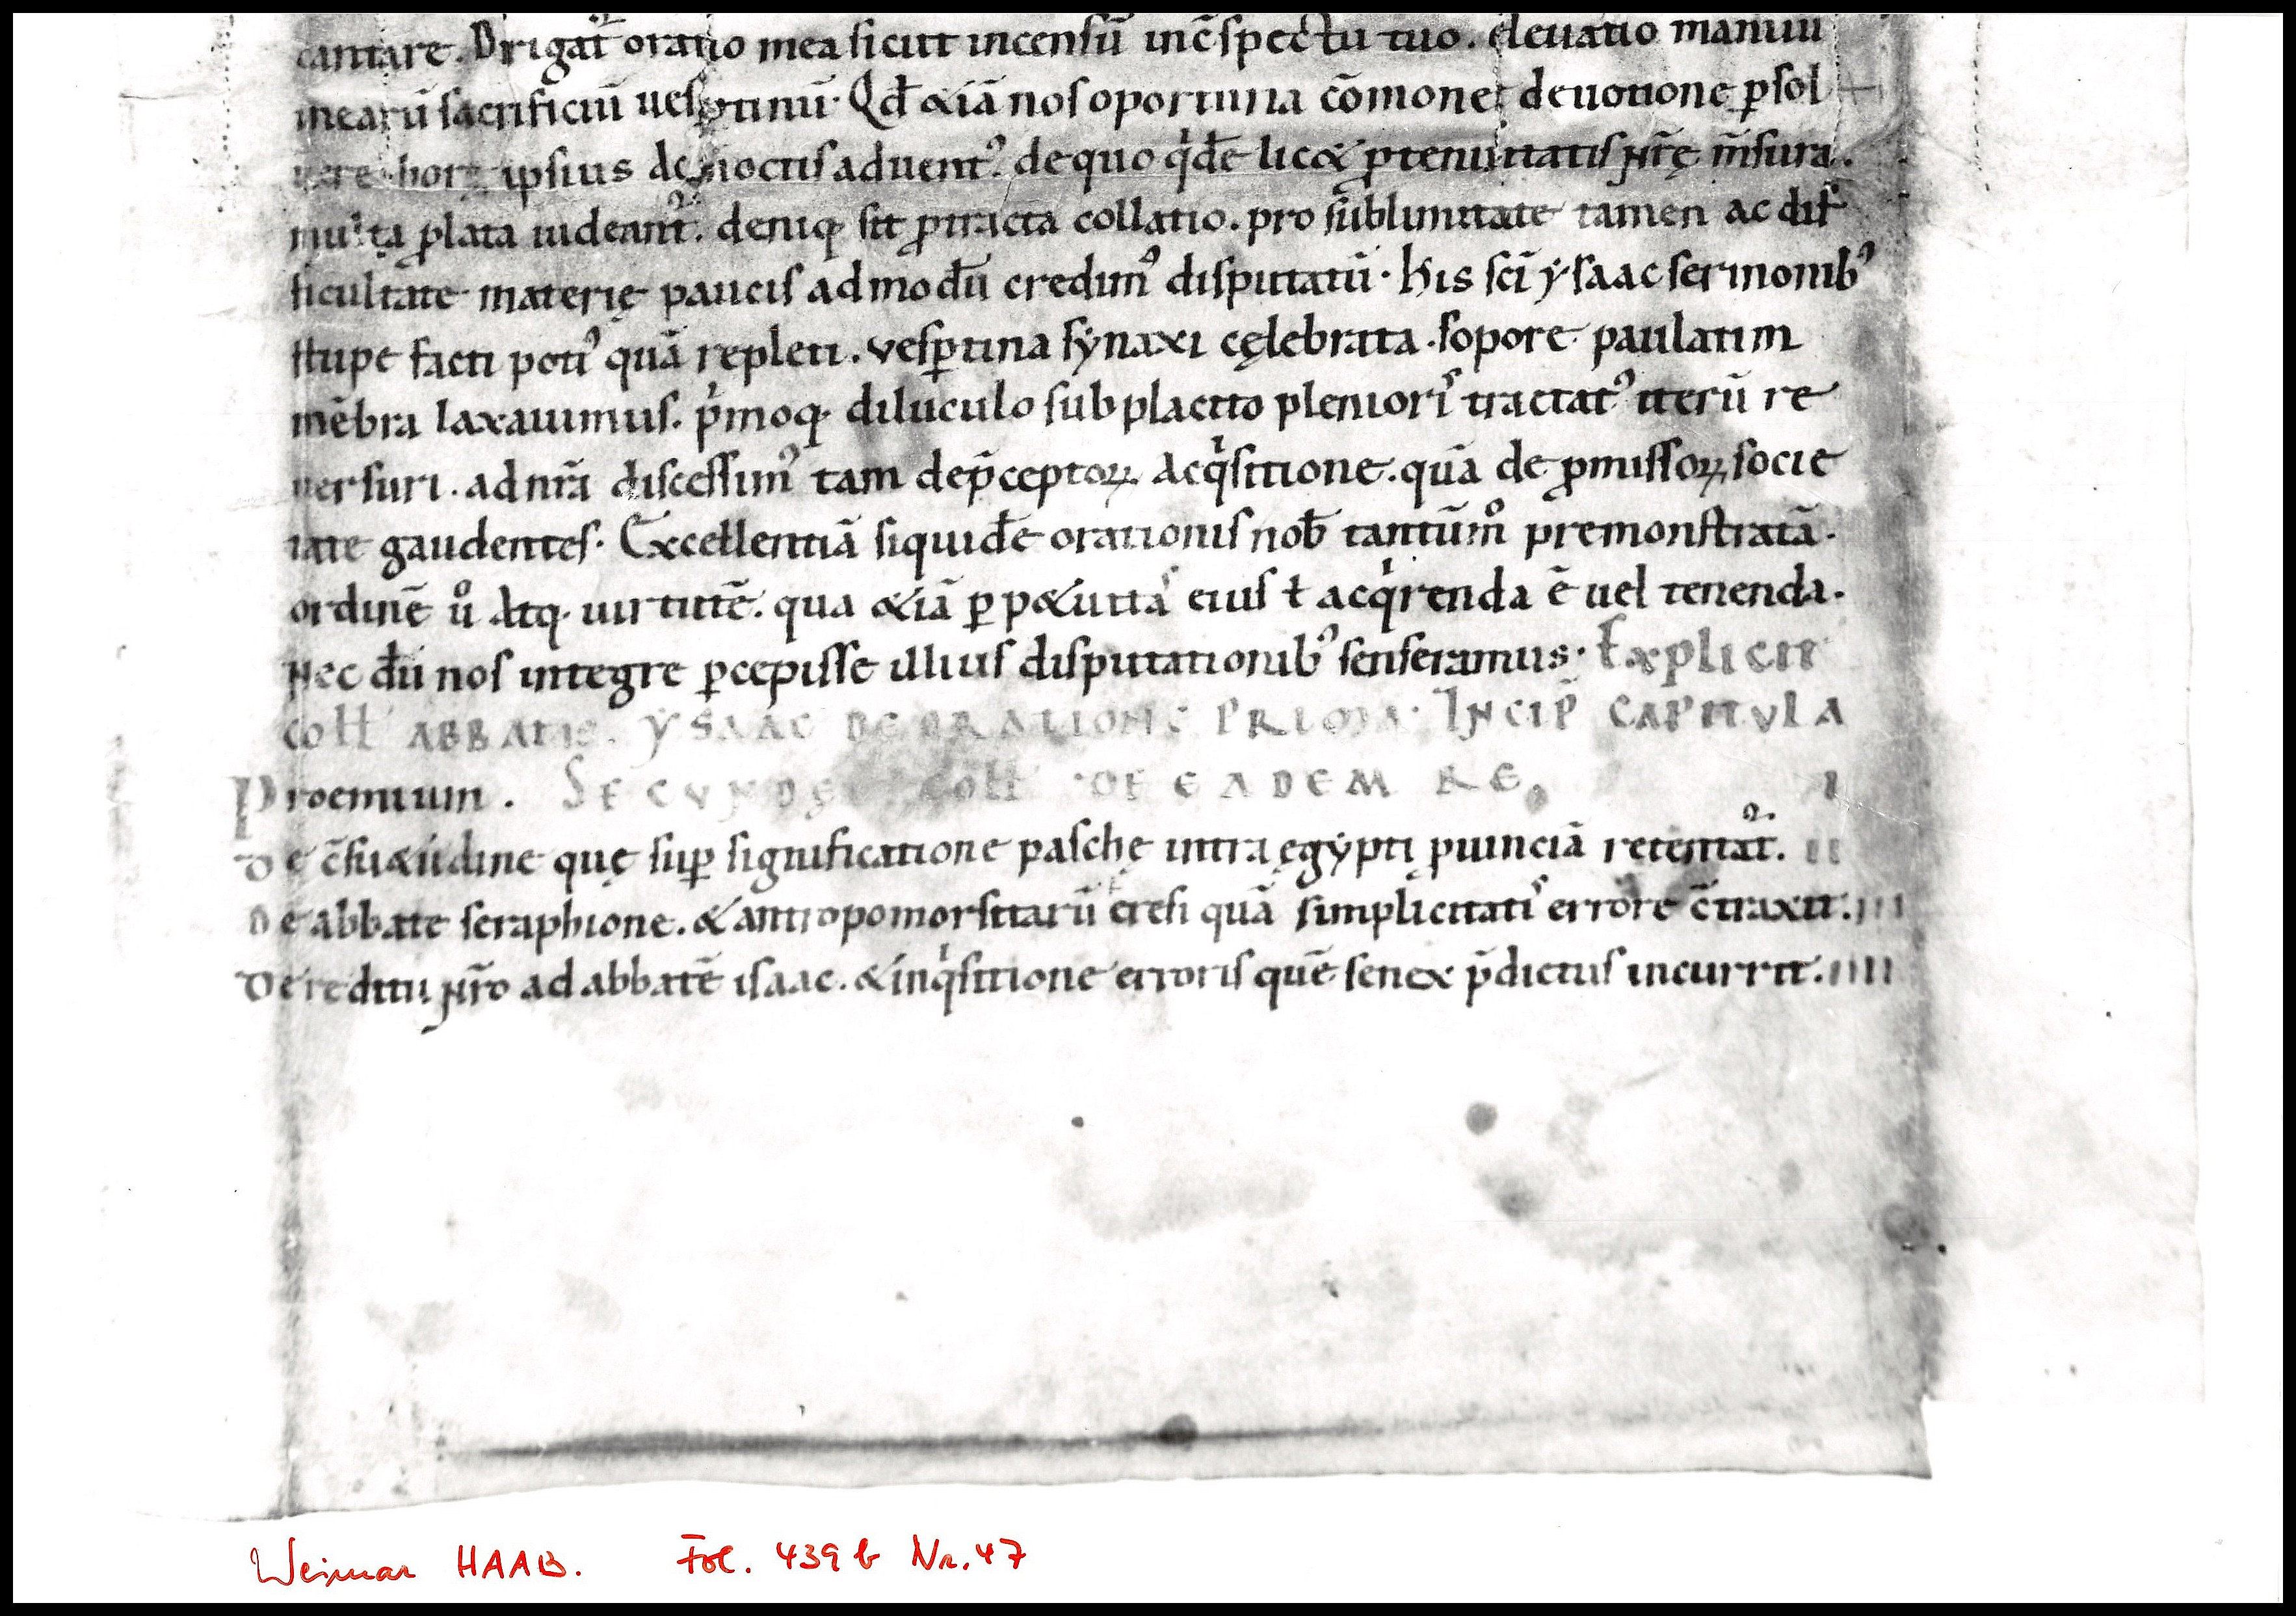 cantare. Dirigat᷑ oratio mea sicut incensū in c̄spectu tuo. eleuatio manuū
mearū sacrificiū uesꝑtinū. Qd̄ &iā nos oportuna cōmonet deuotione ꝑsol
uere horę ipsius de noctis aduentꝰ. de quo qͥdē lic& ꝓ tenuitatis nr̄ę m̄sura.
multa ꝓlata uideant᷑. deniq; sit ꝓtracta collatio. pro sublimitate tamen ac dif
ficultate materię paucis admodū credimꝰ disputatū. His sc̄i ẏsaac sermonibꝰ
stupe facti potiꝰ quā repleti. vesꝑtina sẏnaxi cęlebrata. sopore paulatim
mēbra laxauimus. pͥmoq; diluculo sub placito pleniorıˢ tractatꝰ iterū re
uersuri. ad nr̄a discessimꝰ tam de p̄ceptoꝝ acqͥsitione. quā de ꝓmissoꝝ socie
tate gaudentes. Excellentiā siquidē orationis nob̄ tantūmͦ premonstratā.
ordinē uͦ atq; uirtutē. qua &iā ꝑp&uitaˢ eius ł acqͥrenda ē uel tenenda.
nec dū nos integre ꝑcepisse illius disputationibꝰ senseramus. Explicit
coll̄ ABBATIS. ẎSAAC DE ORATIONE PRIMA. INCIP̄ CAPITVLA
Proemium. SECVNDĘ coll̄ DE EADEM RE. I
De c̄su&udine quę suꝑ significatione paschę intra ęgẏpti ꝓuinciā retentat᷑. II
De abbate seraphione. & antropomorfitarū eresi quā simplicitatiˢ errore c̄traxit. III
De reditu nr̄o ad abbatē isaac. & inqͥsitione erroris quē senex p̄dictus incurrit. IIII
Weimar HAAB. Fol. 439 b Nr. 47